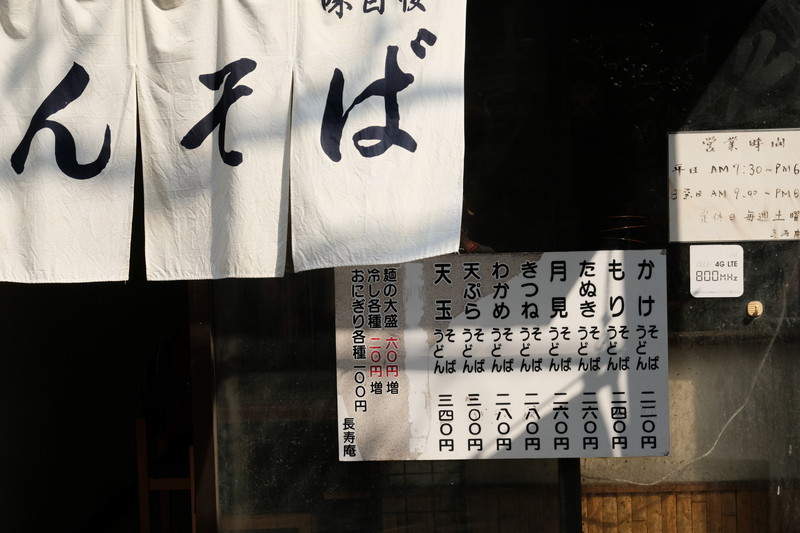 味自慢
んそば
かけ そば うどん 二二〇円
もり そば うどん 二四〇円
たぬき そば うどん 二六〇円
月見 そば うどん 二六〇円
きつね そば うどん 二八〇円
わかめ そば うどん 二八〇円
天ぷら そば うどん 三〇〇円
天玉 そば うどん 三四〇円
麺の大盛 六〇円増
冷し各種 二〇円増
おにぎり各種 一〇〇円
長寿庵
営業時間
平日 AM 7:30~PM6
日祭日 AM 9:00~PM
定休日 毎週土曜
4G LTE
800MHz